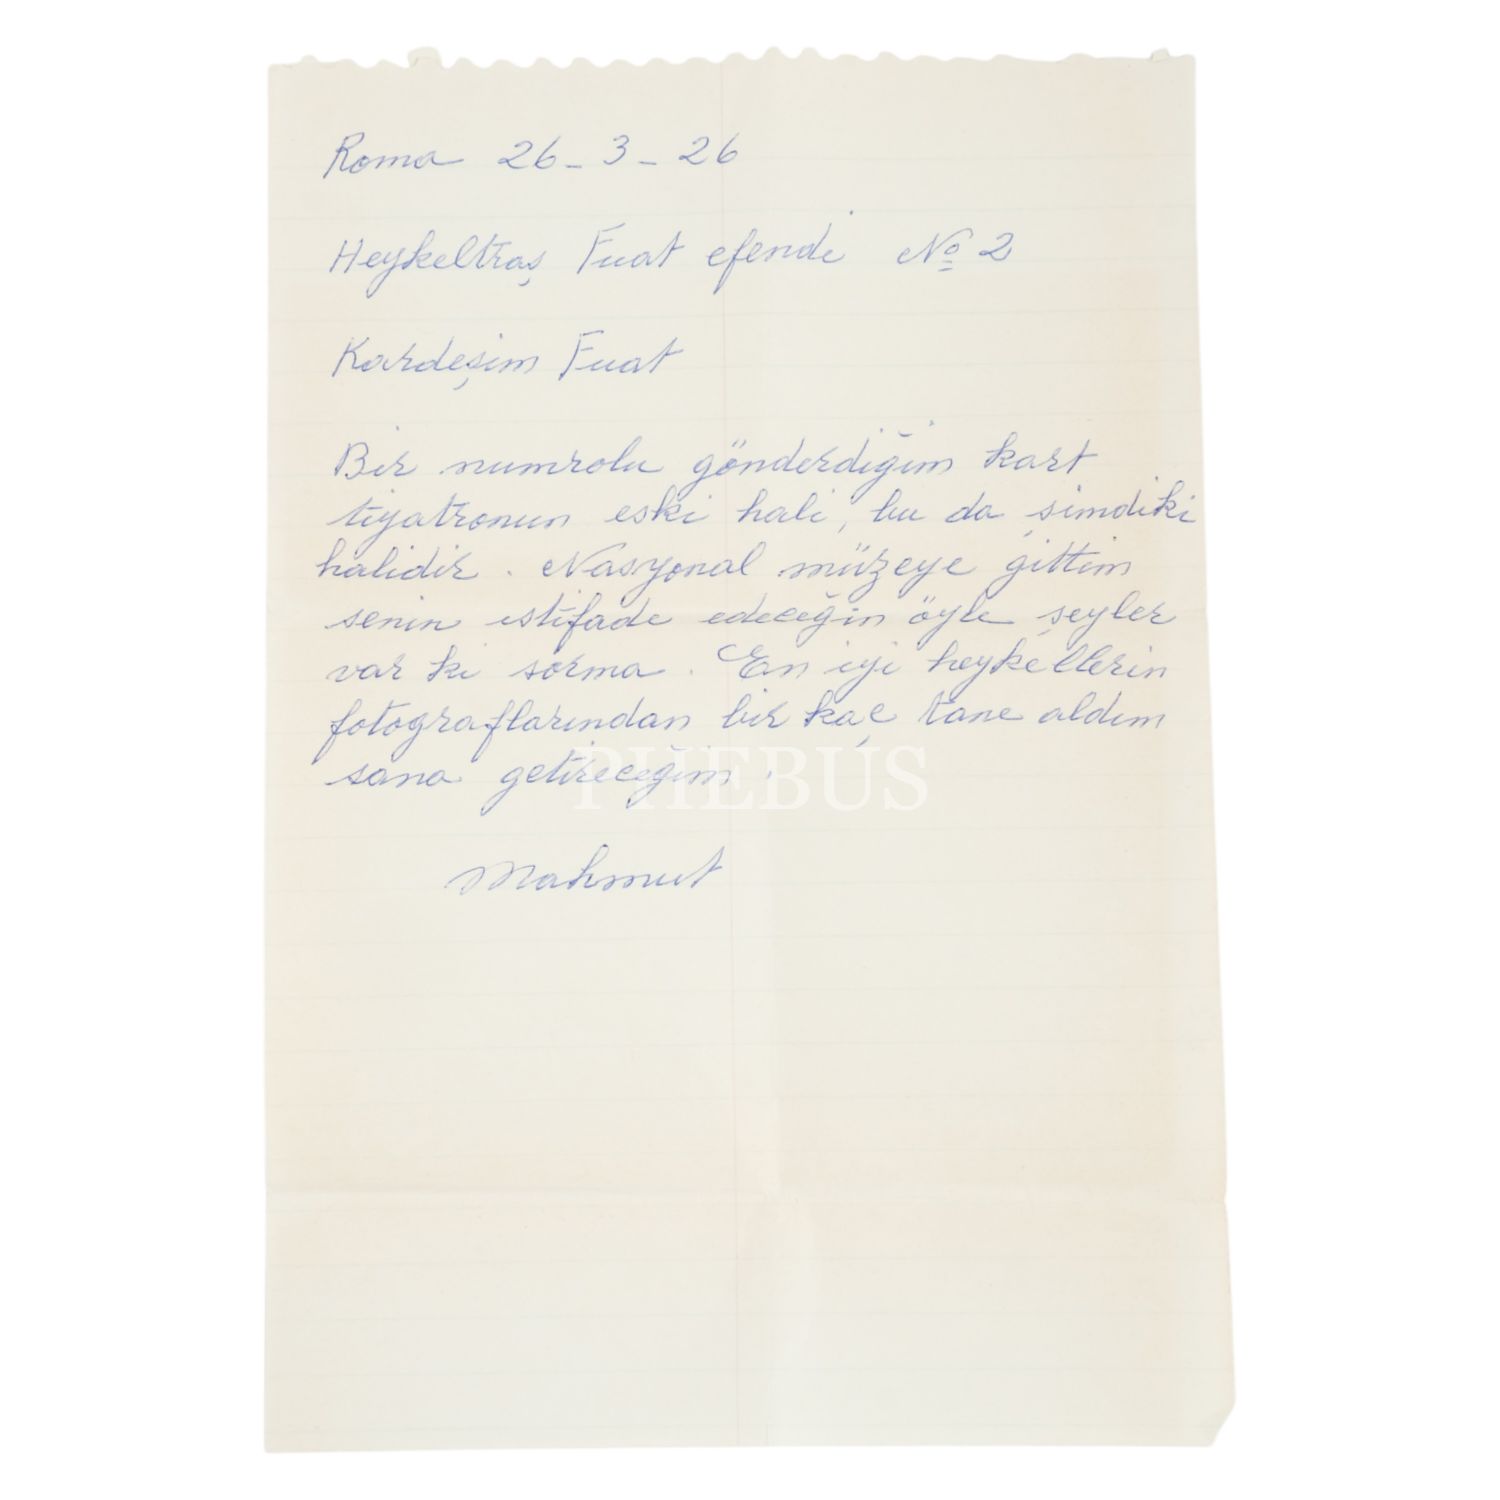 Roma 26-3-26
Heykeltraş Fuat efendi No 2
Kardeşim Fuat
Bir numrolu gönderdiğim kart
tiyatronun eski hali, bu da şimdiki
halidir. Nasyonal müzeye gittim
senin istifade edeceğin öyle şeyler
var ki sorma. En iyi heykellerin
fotograflarından bir kaç tane aldım
sana getireceğim.
PHEBUS
Mahmut